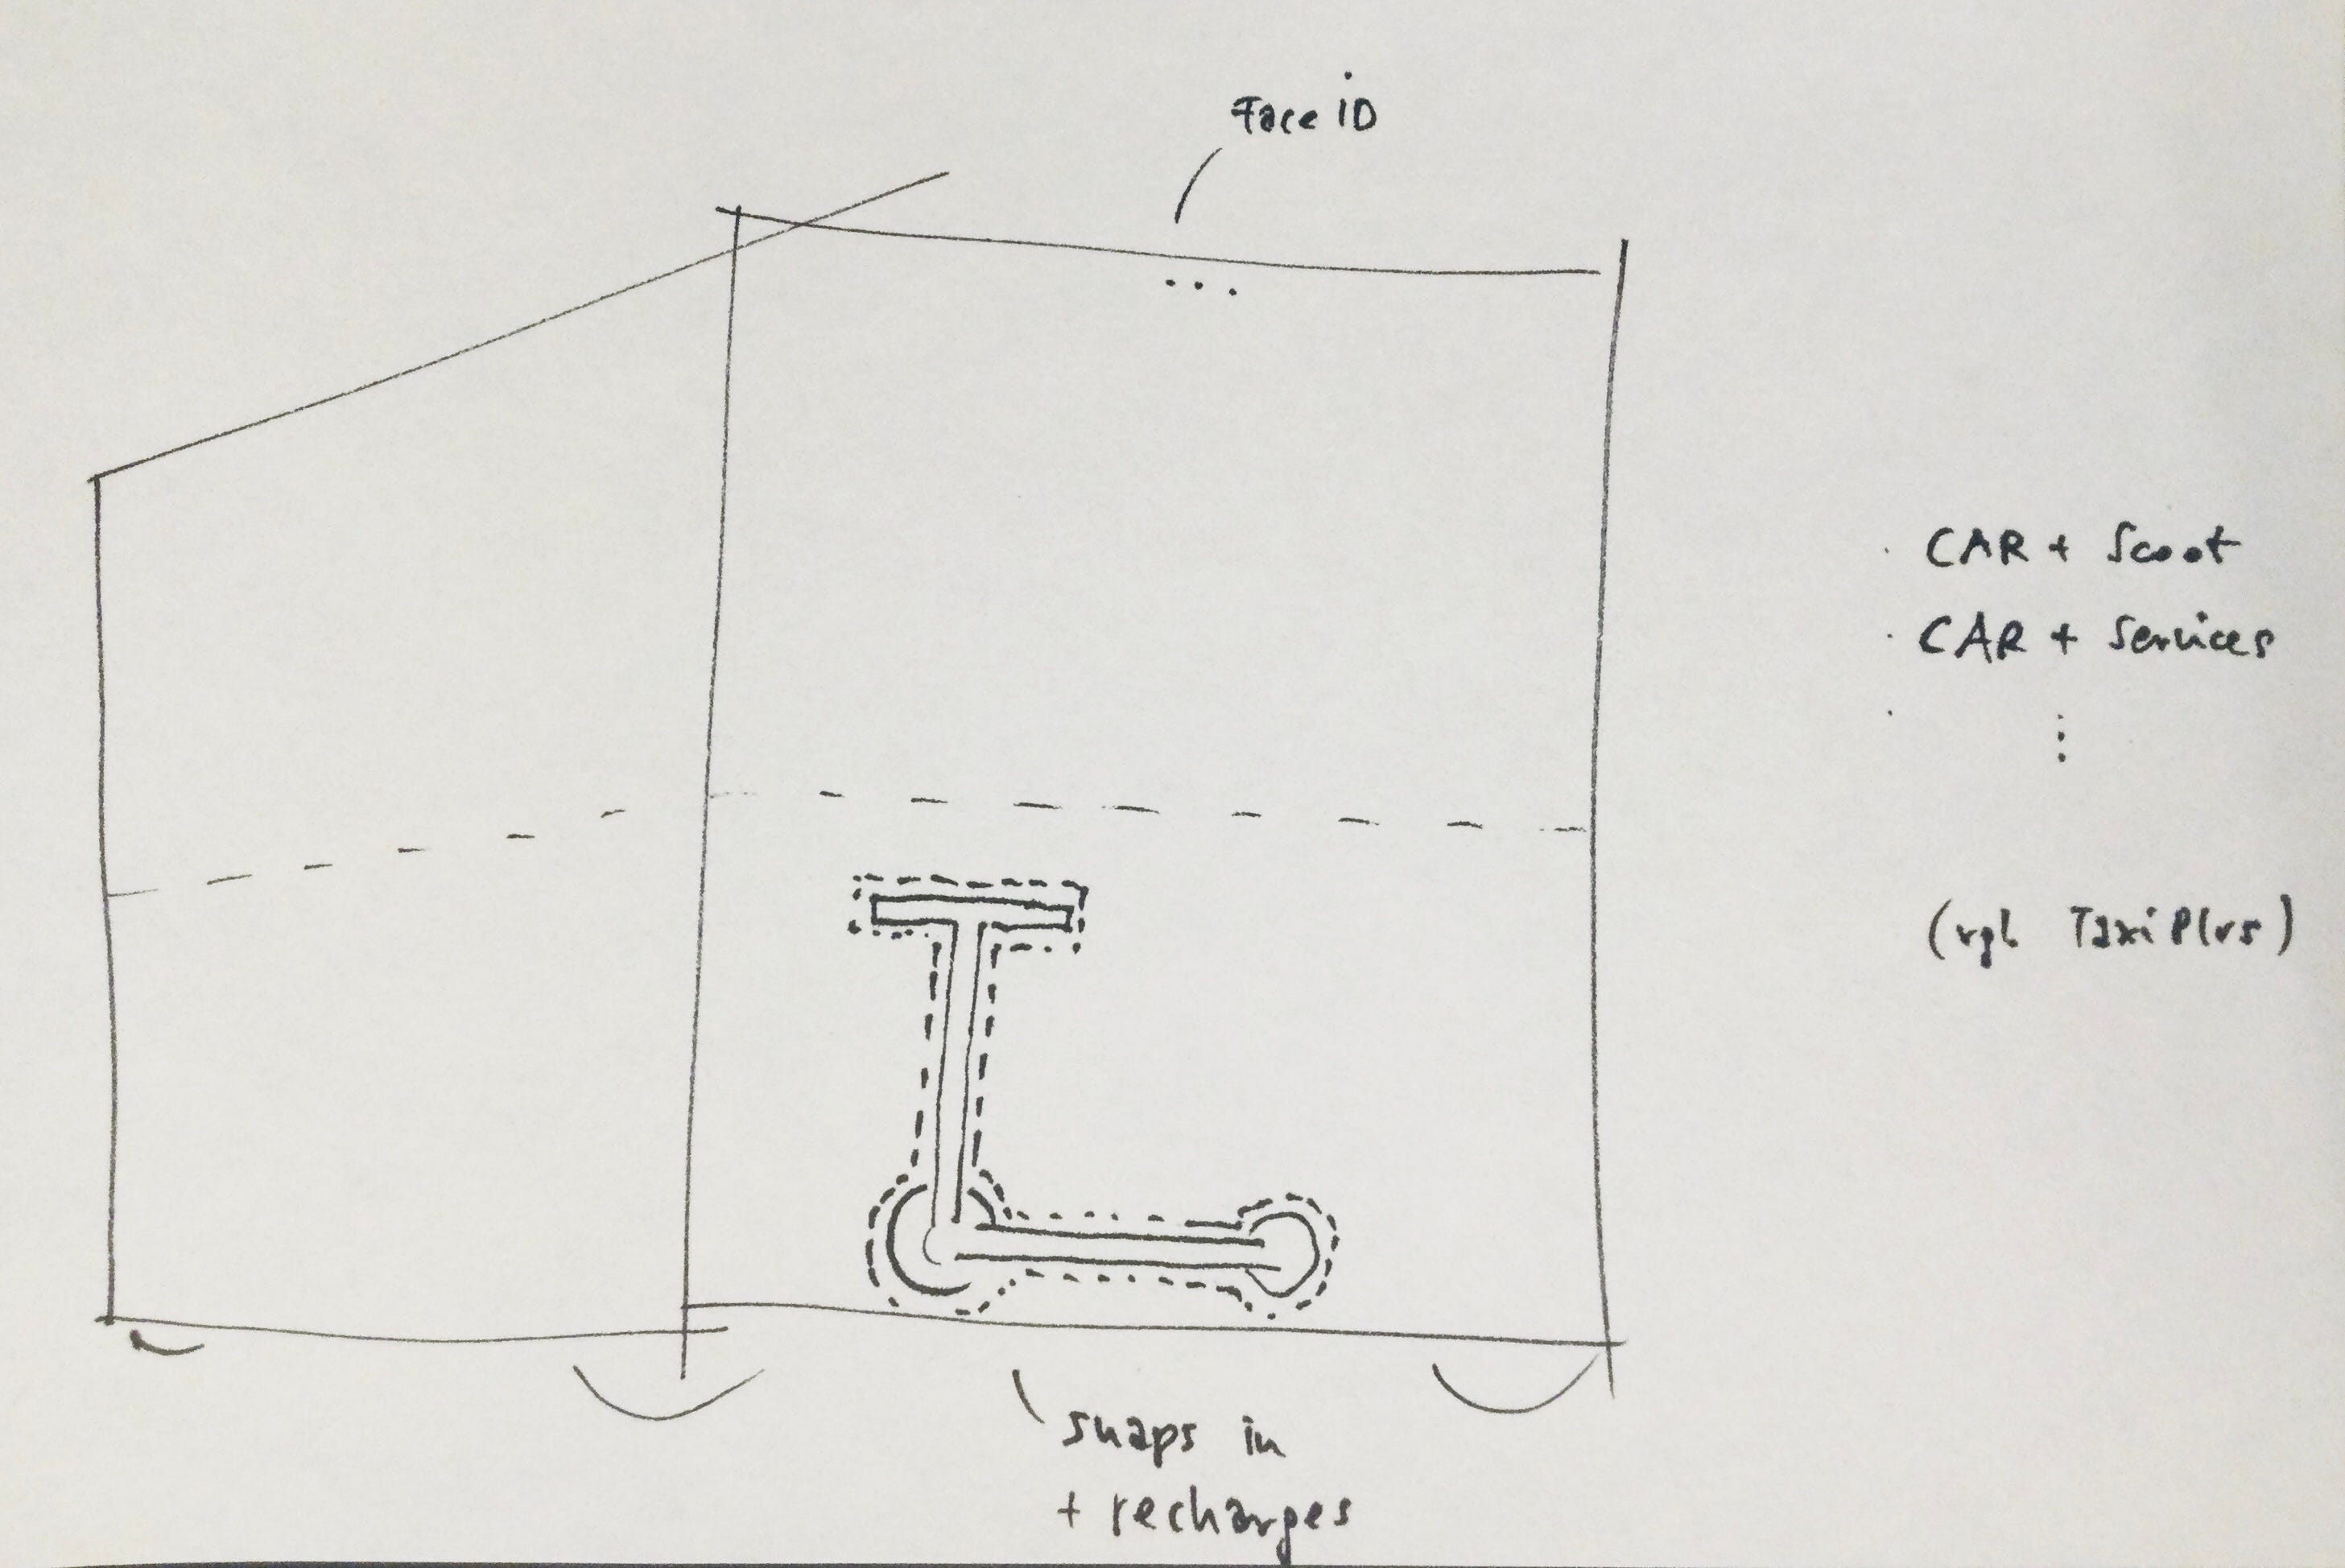 Face iD
...
CAR + Scoot
CAR + Services
⋮
(vgl TaxiPlus)
snaps in
+ recharges